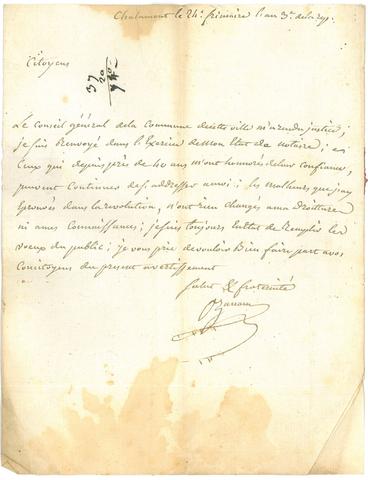 Chalamont le 24e frimaire l'an 3e de la rep.
Citoyens
37
20
Le Conseil général de la Commune de cette ville m'a rendu justice;
je suis Renvoyé dans l'Exercice de Mon Etat de notaire; 
Ceux qui depuis près de 40 ans m'ont honorés de leur confiance,
peuvent Continuer de s'addresser a moi; les malheurs que j'ay
Eprouvés dans la revolution, n'ont rien changés a ma Droitture
ni a mes Connoissances; je suis toujours En Etat de Remplir les
voeux du public; je vous prie de vouloir Bien faire part a vos
Concitoyens du present avertissement
Salut & fraternité